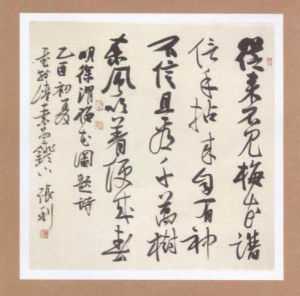 從來不見梅花譜
信手拈來自有神
不信且看千萬樹
東風吹着便成春
明徐渭梅花圖題詩
乙酉初夏
張利